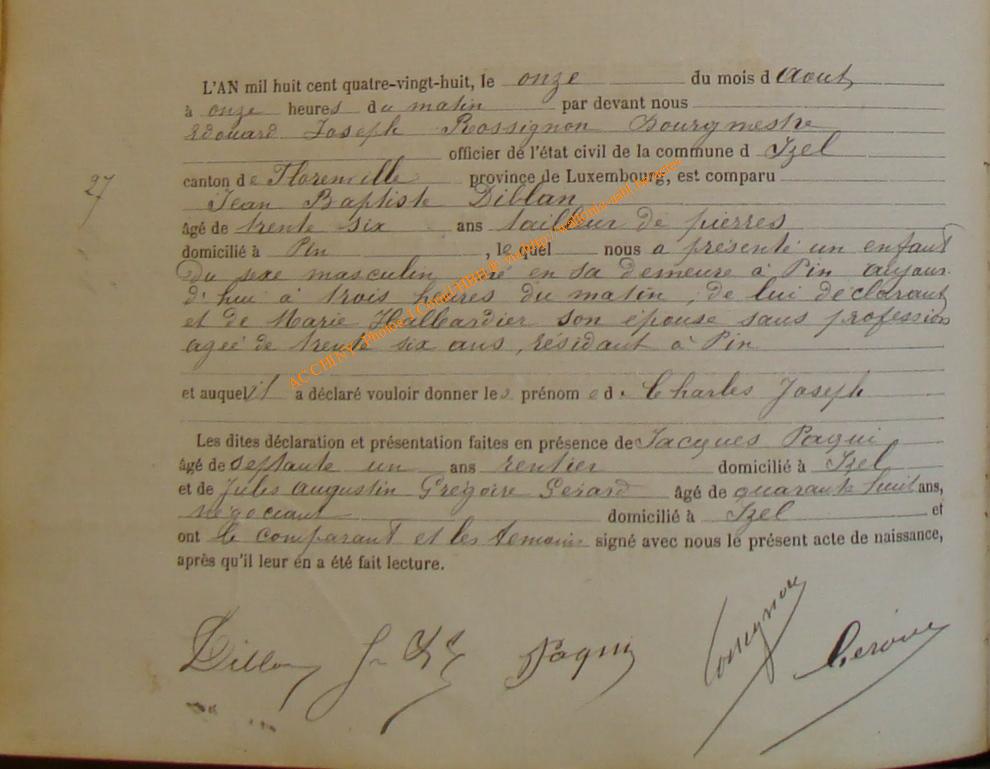 L'AN mil huit cent quatre-vingt-huit, le onze du mois d Aout
à onze heures du matin par devant nous
Edouard Joseph Rossignon Bourgmestre
officier de l'état civil de la commune d Izel
27
canton de Florenville province de Luxembourg, est comparu
Jean Baptiste Dillan
âgé de trente six ans tailleur de pierres
domicilié à Pin, lequel nous a présenté un enfant
du sexe masculin né en sa demeure à Pin aujour-
d'hui à trois heures du matin, de lui déclarant
et de Marie Hallardier son épouse sans profession
agée de trente six ans, résidant à Pin
et auquel il a déclaré vouloir donner les prénom d Charles Joseph
Les dites déclaration et présentation faites en présence de Jacques Paqui
âgé de septante un ans rentier domicilié à Izel
et de Jules Augustin Grégoire Gerard âgé de quarante huit ans,
négociant domicilié à Izel et
ont le comparant et les temoins signé avec nous le présent acte de naissance,
après qu'il leur en a été fait lecture.
Paqui